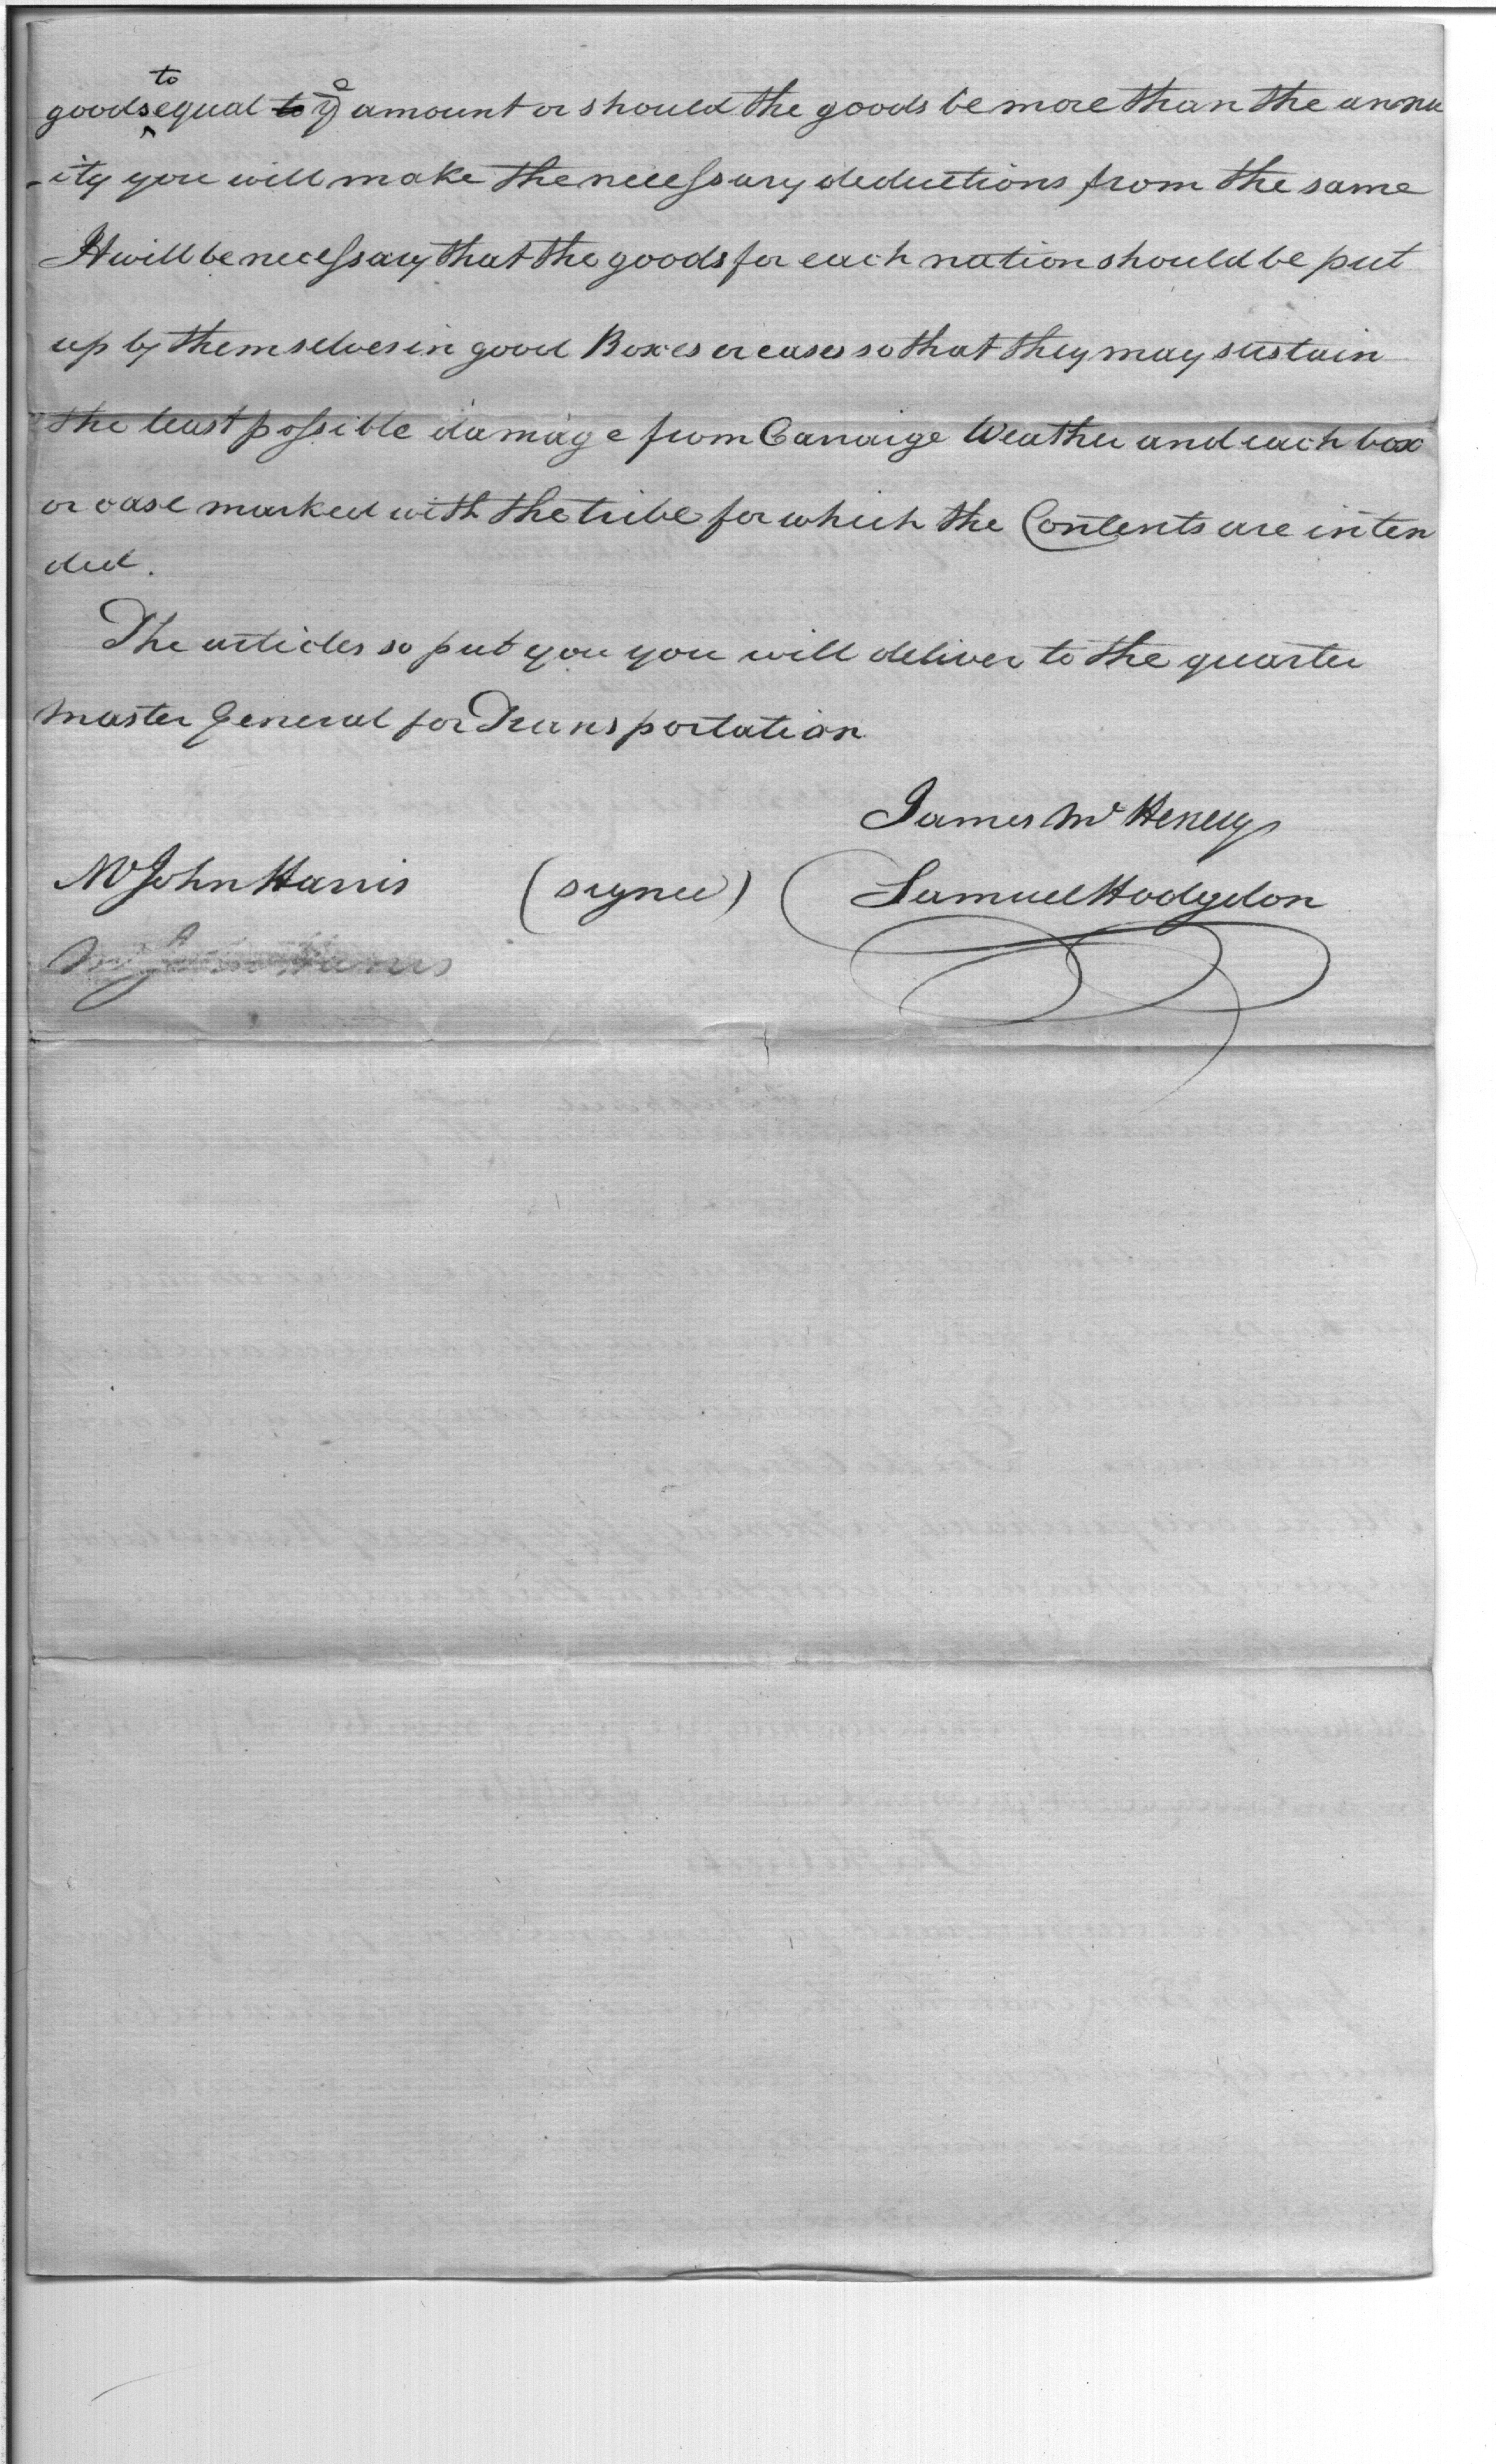 goods to equal to ye amount or should the goods be more than the annu
-ity you will make the necessary deductions from the same
It will be necessary that the goods for each nation should be put
up by themselves in good Boxes or cases so that they may sustain
the least possible damage from Carraige Weather and each box
or case marked with the tribe for which the Contents are inten
ded.
The articles so put you you will deliver to the quarter
master General for Transportation
James McHenry
Mr John Harris (signed) Samuel Hodgdon
Mr John Harris